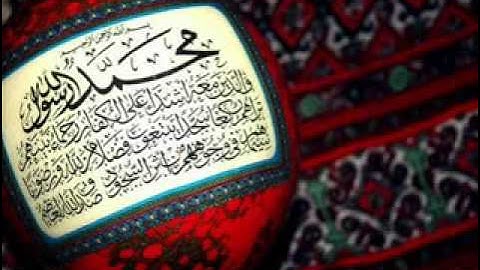 بسم الله الرحمن الرحيم
محمد رسول الله
والذين معه أشداء على الكفار رحماء بينهم
تراهم ركعا سجدا يبتغون فضلا من الله ورضوانا
سيماهم في وجوههم من أثر السجود صدق الله العظيم